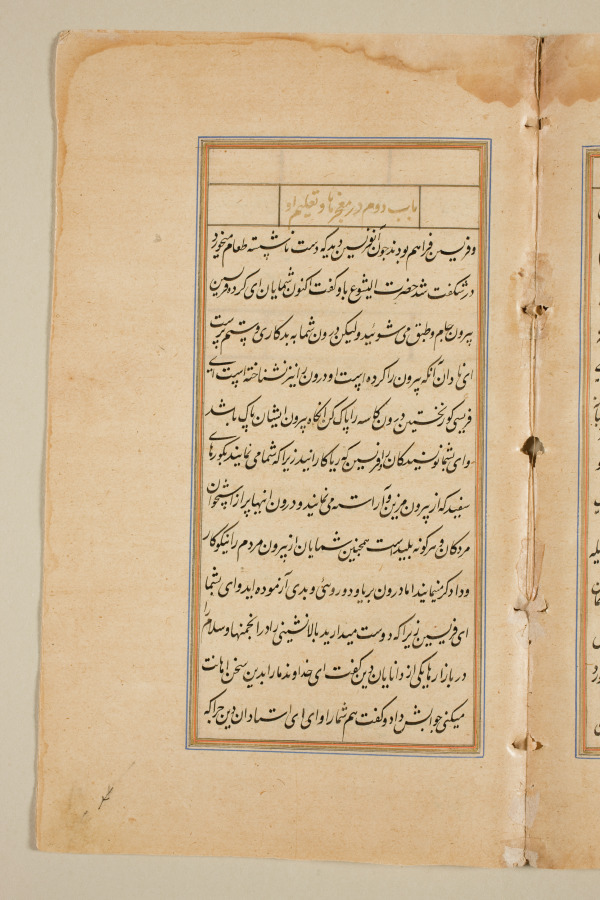 باب دوم در معجزها و تعلیم او
و فریسین فراهم بودند چون آنفریسین دید که دست ناشسته طعام میخورد
در شگفت شد حضرت الیشوع باو گفت اکنون شمایان ای کرده فریسین
بیرون جام و طبق می شوئید ولیکن درون شما به بدکاری و ستم پرست
ای نادان آنکه بیرون را کرده است او درون را نیز نشناخته است ای
فریسی کور نخستین درون کاسه را پاک کن آنکاه بیرون ایشان پاک باشد
وای بشما نویسندکان و فریسین که ریاکارانید زیرا که شما می نمایند بکورهای
سفید که از بیرون مزین و آراسته می نمایند و درون انها پر از استخوان
مردکان و هرکونه پلیدیست همچنین شمایان از بیرون مردم را نیکوکار
و دادکر مینمایند اما درون بریا و دوروئی و بدی آزموده اید وای بشما
ای فریسین زیرا که دوست میدارید بالانشینی را در انجمنها و سلام را
در بازارها یکی از دانایان دین گفت ای خداوند ما را بدین سخن اهانت
میکنی جوابش داد و گفت هم شما را وای ای استادان دین چرا که